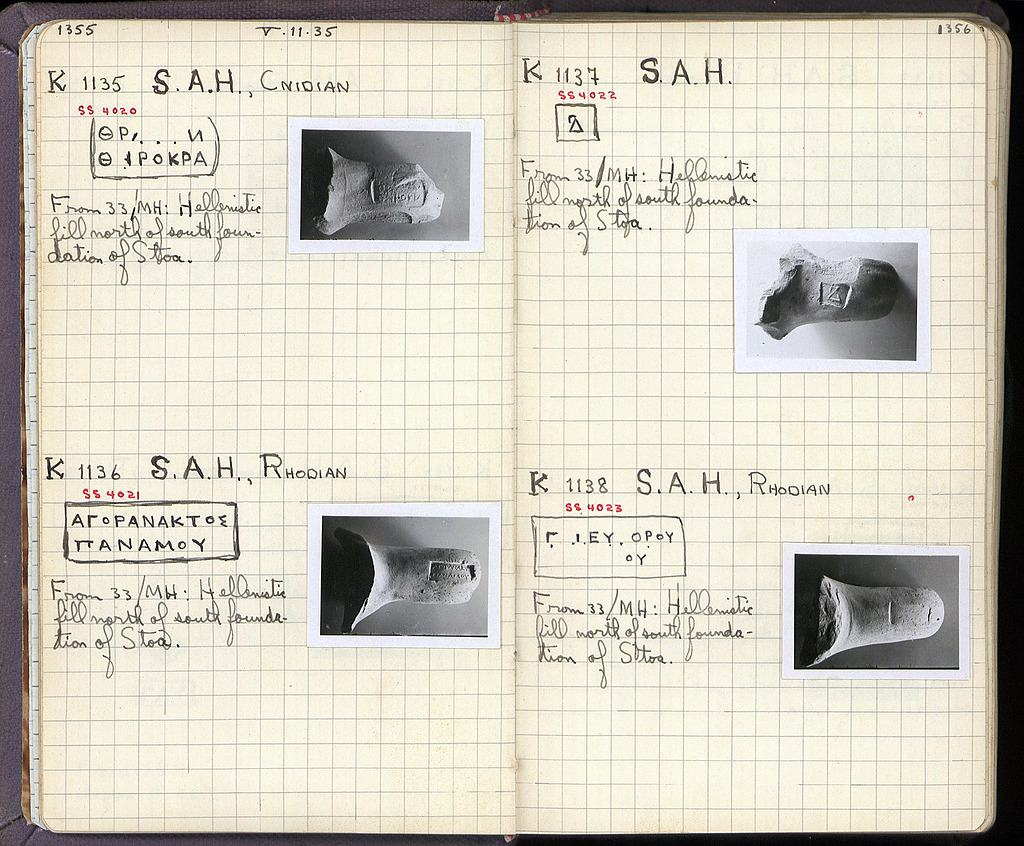 1355 V.11.35
K 1135 S.A.H., CNIDIAN
SS 4020
ΘΡ,...И
Θ.ΙΡΟΚΡΑ
From 33/MH: Hellenistic
fill north of south foun-
dation of Stoa.
K 1136 S.A.H., RHODIAN
SS 4021
ΑΓΟΡΑΝΑΚΤΟΣ
ΠΑΝΑΜΟΥ
From 33/MH: Hellenistic
fill north of south founda-
tion of Stoa.
1356
K 1137 S.A.H.
SS 4022
From 33/MH: Hellenistic
fill north of south founda-
tion of Stoa.
K 1138 S.A.H., RHODIAN
SS 4023
Γ .Ι.ΕΥ.ΟΡΟΥ
ΟΥ
From 33/MH: Hellenistic
fill north of south founda-
tion of Stoa.